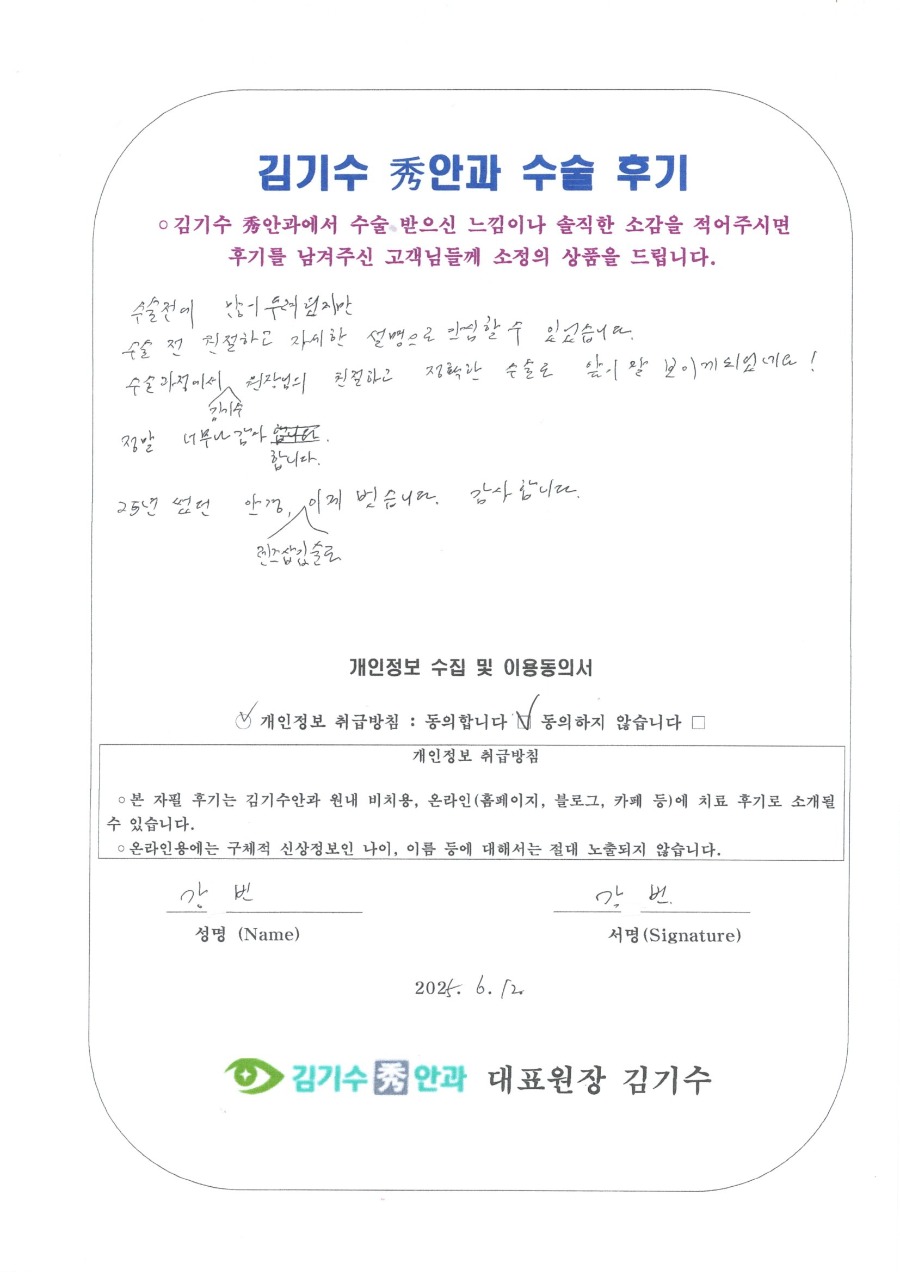 김기수 秀안과 수술 후기
○ 김기수 秀안과에서 수술 받으신 느낌이나 솔직한 소감을 적어주시면
후기를 남겨주신 고객님들께 소정의 상품을 드립니다.
수술전에 많이 두려웠지만
수술 전 친절하고 자세한 설명으로 안심할 수 있었습니다.
수술과정에서 원장님의 친절하고 정확한 수술로 앞이 잘 보이게되었네요!
김기수
정말 너무나 감사
합니다.
25년 썼던 안경, 이제 벗습니다. 감사합니다.
렌즈삽입술로
개인정보 수집 및 이용동의서
개인정보 취급방침 : 동의합니다 □ 동의하지 않습니다 □
개인정보 취급방침
○ 본 자필 후기는 김기수안과 원내 비치용, 온라인(홈페이지, 블로그, 카페 등)에 치료 후기로 소개될
수 있습니다.
○ 온라인용에는 구체적 신상정보인 나이, 이름 등에 대해서는 절대 노출되지 않습니다.
강 빈 강 빈
성명 (Name) 서명(Signature)
2025. 6. 12.
김기수 秀 안과 대표원장 김기수